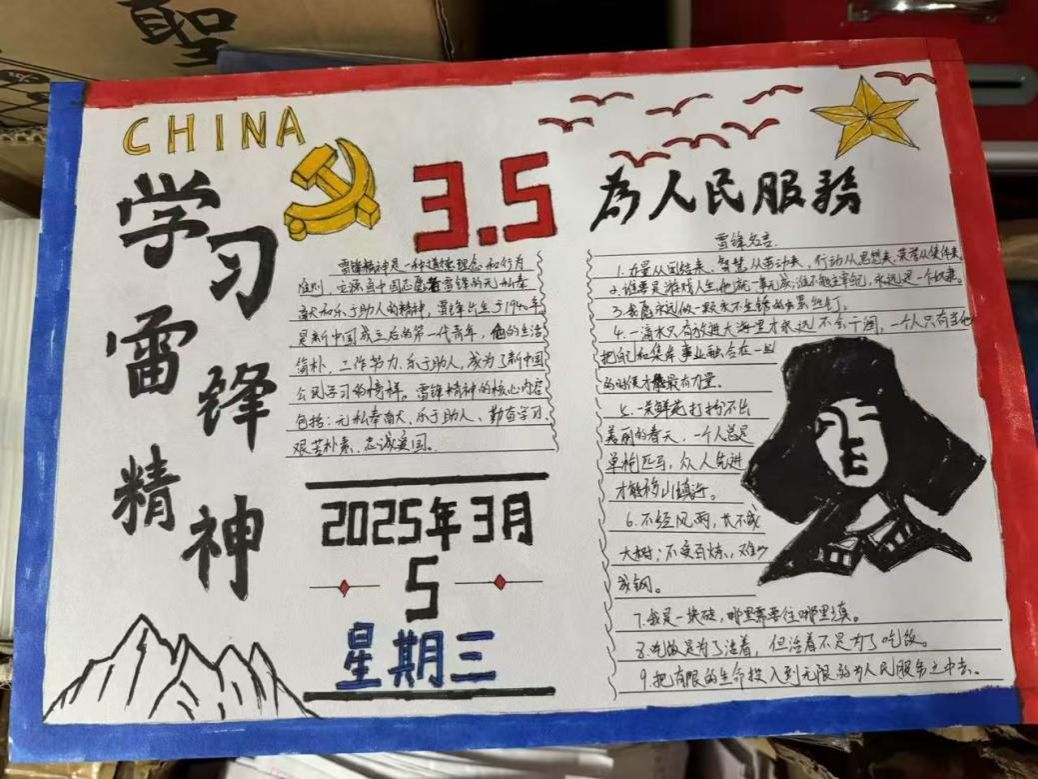 聖
CHINA
学习
雷锋
精神
3.5
为人民服務
雷锋精神是一种道德理念和行为
准则，它源自中国志愿者雷锋的无私奉
献和乐于助人的精神，雷锋出生于1940年
是新中国成立后的第一代青年，他的生活
简朴、工作努力、乐于助人，成为了新中国
公民学习的榜样。雷锋精神的核心内容
包括：无私奉献、乐于助人、勤奋学习
艰苦朴素、忠诚爱国。
2025年3月
5
星期三
雷锋名言.
1.力量从团结来，智慧从劳动来，行动从思想来，荣誉从集体来.
2.谁要是游戏人生他就一事无成；谁不能主宰自己，永远是一个奴隶。
3.我愿永远做一颗永不生锈的螺丝钉。
4.一滴水只有放进大海里才永远不会干涸，一个人只有当他
把自己和集体事业融合在一起
的时候才能最有力量.
5.一朵鲜花打扮不出
美丽的春天，一个人总是
单枪匹马，众人先进
才能移山填海。
6.不经风雨，长不成
大树；不受百炼，难以
成钢。
7.我是一块砖，哪里需要往哪里填。
8.吃饭是为了活着，但活着不是为了吃饭。
9.把有限的生命投入到无限的为人民服务之中去。